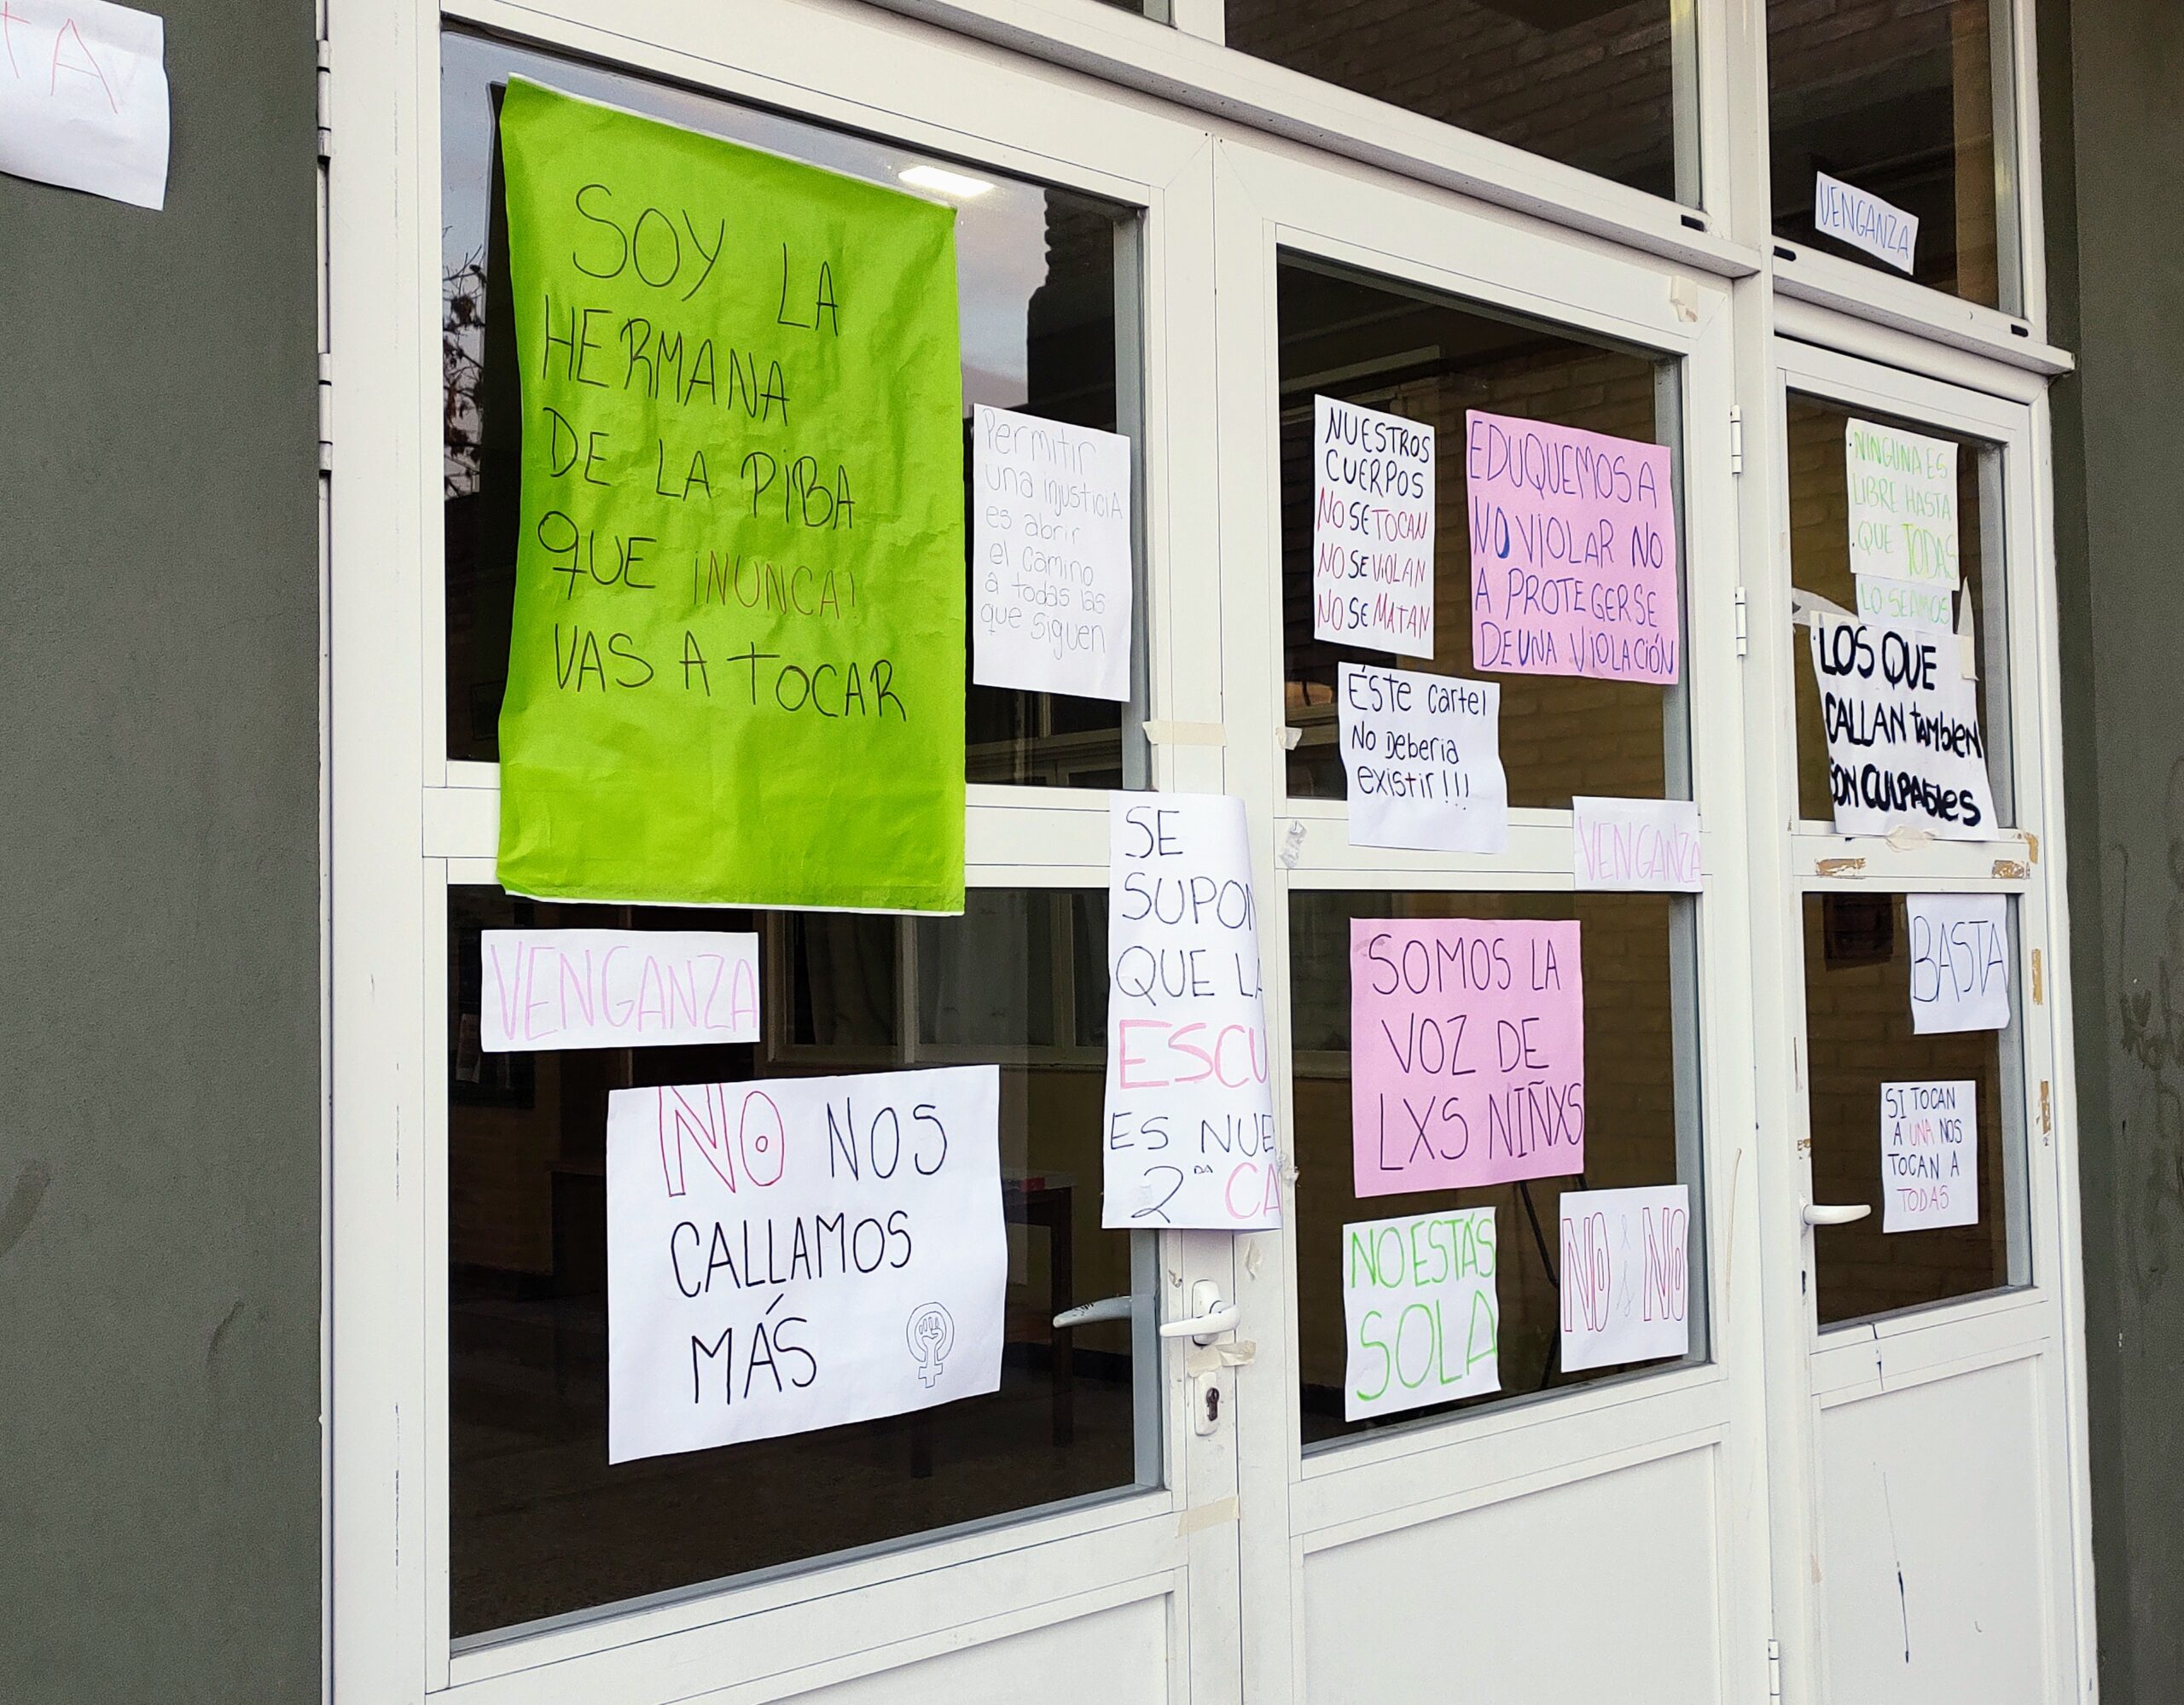 TA
SOY LA
HERMANA
DE LA PIBA
QUE ¡NUNCA!
VAS A TOCAR
Permitir
una injusticia
es abrir
el camino
a todas las
que siguen
VENGANZA
NO NOS
CALLAMOS
MÁS
SE
SUPON
QUE LA
ESCU
ES NUE
2DA CA
NUESTROS
CUERPOS
NO SE TOCAN
NO SE VIOLAN
NO SE MATAN
EDUQUEMOS A
NO VIOLAR NO
A PROTEGERSE
DE UNA VIOLACIÓN
ÉSTE cartel
No Deberia
existir!!!
VENGANZA
SOMOS LA
VOZ DE
LXS NIÑXS
NO ESTÁS
SOLA
NO ES NO
VENGANZA
NINGUNA ES
LIBRE HASTA
QUE TODAS
LO SEAMOS
LOS QUE
CALLAN también
SON CULPABLES
BASTA
SI TOCAN
A UNA NOS
TOCAN A
TODAS